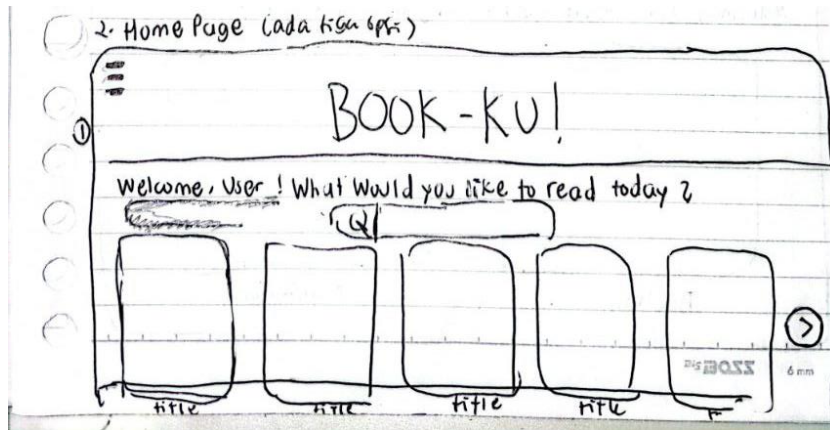 2. Home Page (ada tiga opsi)
1
BOOK-KU!
Welcome, User! What would you like to read today?
Q
>
BOSS
6 mm
title title title title